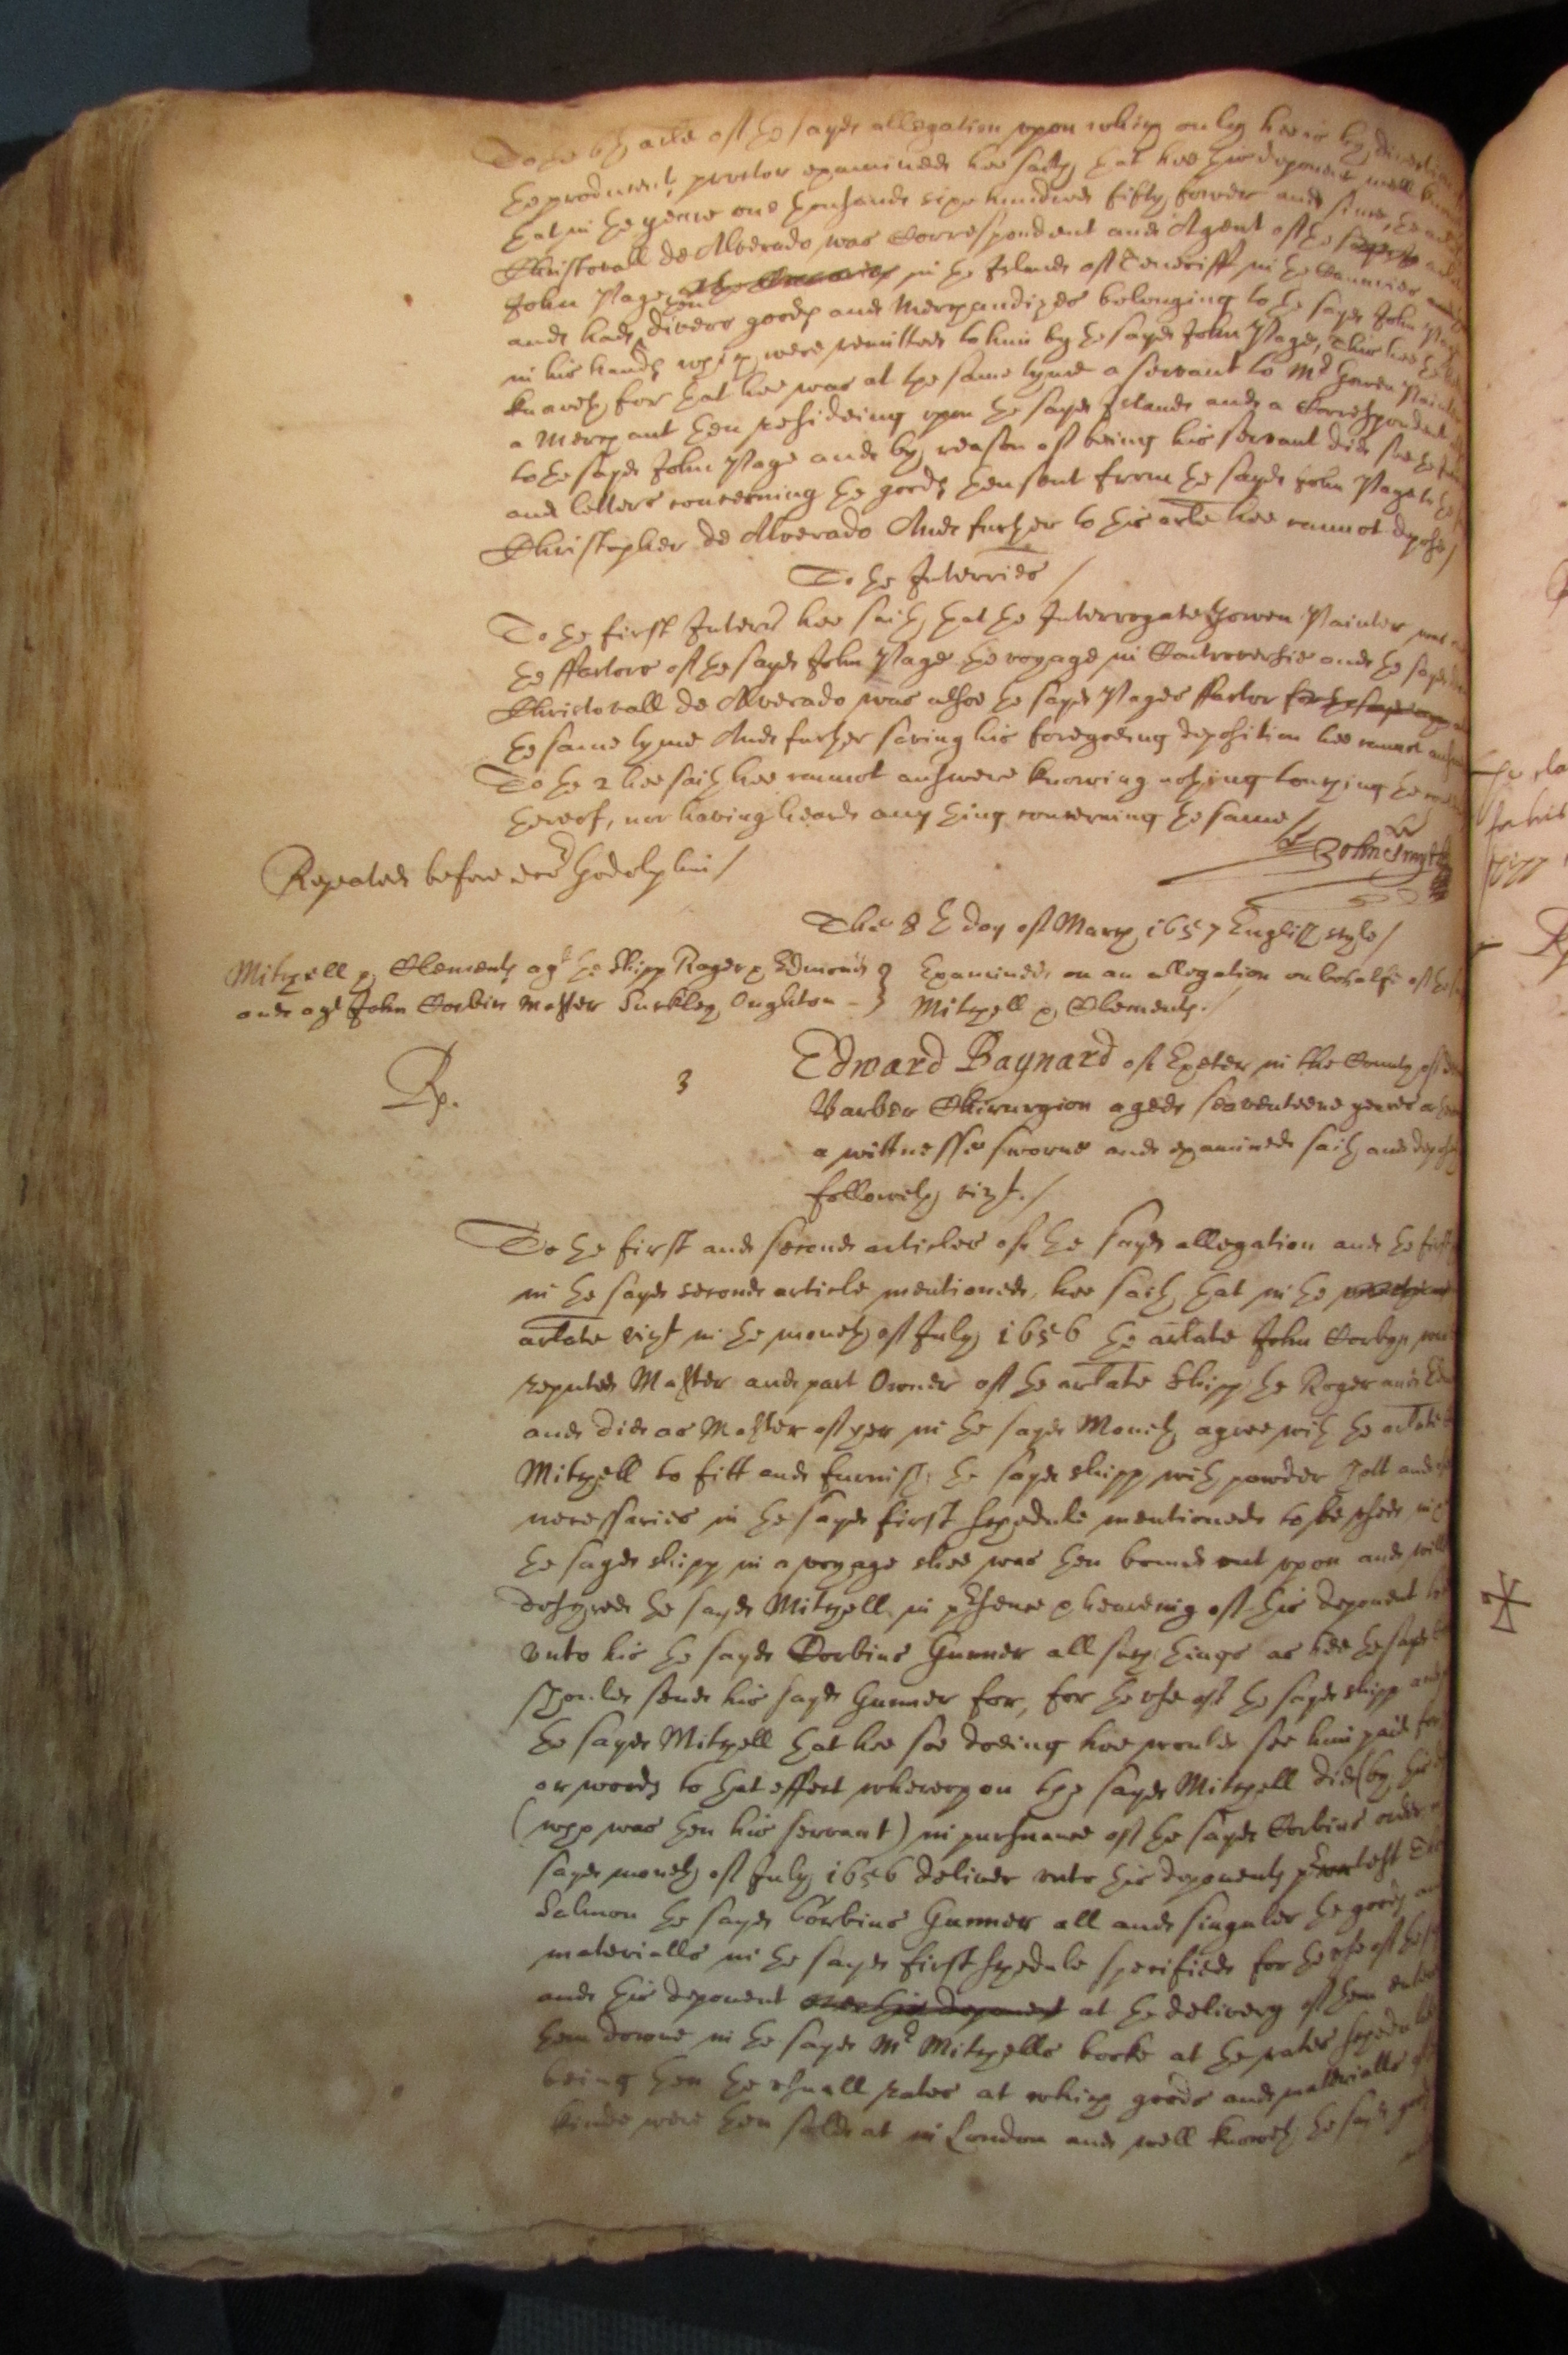 To the 6th arle of the sayd allegation upon which only hee is by direction
the producent proctor examined hee saith that hee this deponent well
that in the yeare one thousand sixe hundred fifty fower and since, the
Christovall de Alverado was Correspondent and Agent of the
John Page in the Island of Teneriff in the Canaries
and had then divers goods and Merchandizes belonging to the sayd John Page
in his hands which were remitted to him by the sayd John Page, This hee the
knoweth for that hee was at the same tyme a servant to Mr Gowen Painter
a Merchant then resideing upon the sayd Island and a Correspondent
to the sayd John Page and by reason of being his servant did see the
and letters concerning the goods then sent from the sayd John Page to the
Christopher de Alverado And further to this arle hee cannot depose/
To the Interries/
To the first Interr hee saith that the Interrogate Gowen Painter was
the ffactors of the sayd John Page the voyage in Controversie and the sayd
Christovall de Alverado was alsoe the sayd Pages ffactor
the same tyme And further saving his foregoeing deposition hee cannot
To the 2 hee saith hee cannot answere knowing nothing touching the
thereof, nor having heard any thing concerning the same/
John Smyth
Repeated before doctor Godolphin/
The 8th day of March 1657 English style/
Mitchell & Clements agt the Shipp Roger & Edmond
and agt John Corbin Master Suckley Oughton
Examined on an allegation on behalfe of the
Mitchell & Clements./
Rp. 3
Edward Baynard of Exeter in the County of
Barber Chirurgion aged seaventeene yeares or
a wittnesse sworne and examined saith and
followeth vizt./
To the first and second articles of the sayd allegation and the first
in the sayd second article mentioned, hee saith that in the
arlate vizt in the moneth of July 1656 the arlate John Corbyn was
reputed Master and part Owner of the arlate Shipp the Roger and
and did as Master of her in the sayd Moneth agree with the arlate
Mitchell to fitt and furnish the sayd shipp with powder shott and
necessaries in the sayd first schedule mentioned to be used in
the sayd shipp in a voyage shee was then bound out upon and
desyred the sayd Mitchell in presence & heareing of this deponent
unto his the sayd Corbins Gunner all such things as hee the sayd
should send his sayd Gunner for, for the use of the sayd shipp and
the sayd Mitchell that hee soe doeing hee would see him paid for
or words to that effect whereupon the sayd Mitchell did (by this
(who was then his servant) in pursuance of the sayd Corbins order
sayd moneth of July 1656 deliver unto this deponents
Salmon the sayd Corbins Gunner all and singuler the goods
materialls in the sayd first schedule specified for the use of the
and this deponent at the delivery of them
them downe in the sayd Mr Mitchells booke at the rates
being then the usuall rates at which goods and materialls
kinde were then sold at in London and well knoweth the sayd